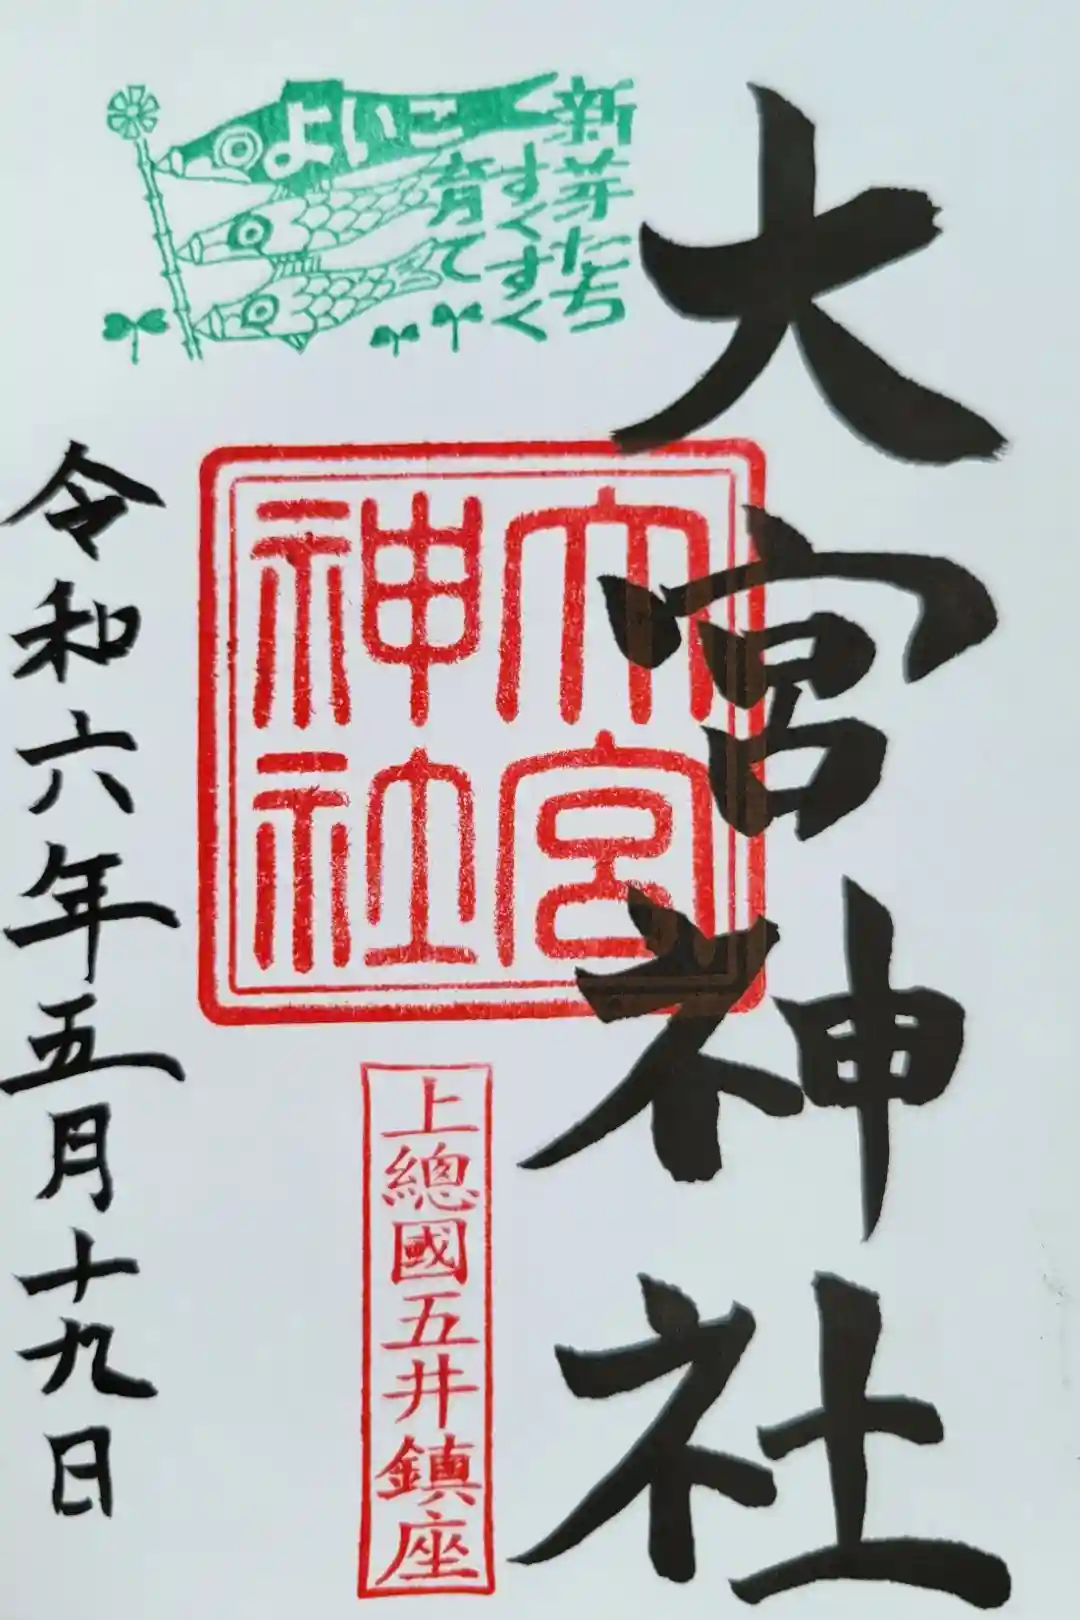 大宮神社
新芽たち
すくすく
育て
よいこ
大宮
神社
上總國五井鎮座
令和六年五月十九日